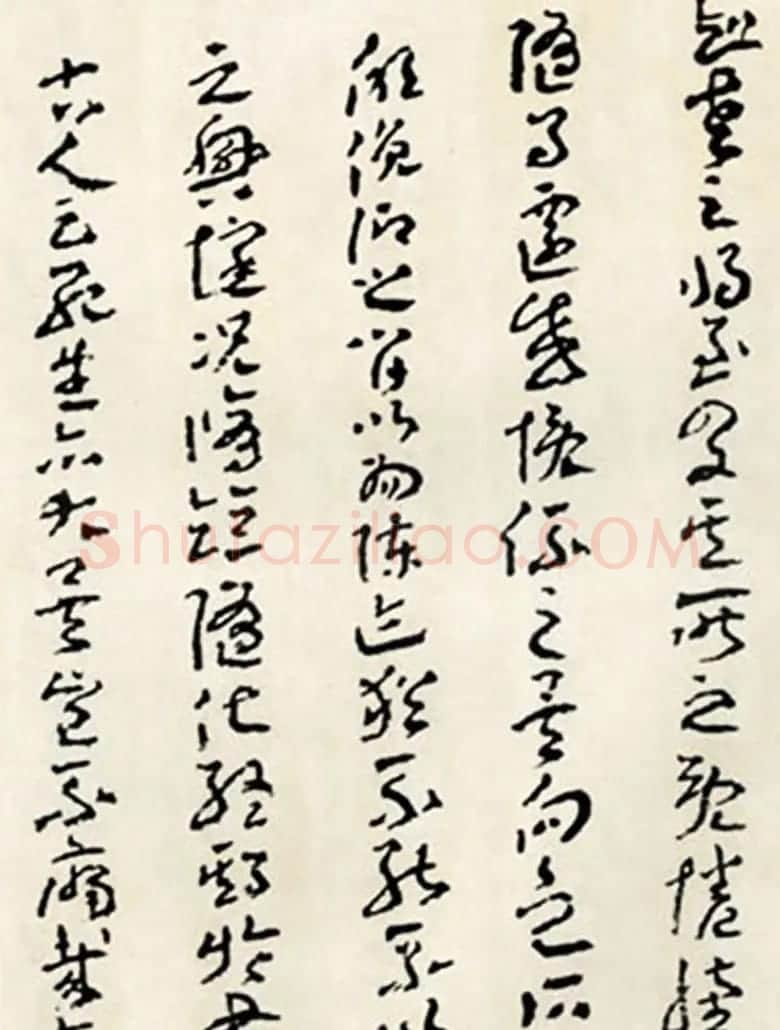 知老之將至及其所之既惓情
隨事遷感慨係之矣向之所
欣俛仰之間以為陳迹猶不能不以
之興懷況脩短隨化終期於盡
古人云死生亦大矣豈不痛哉
Shufaziliao.COM